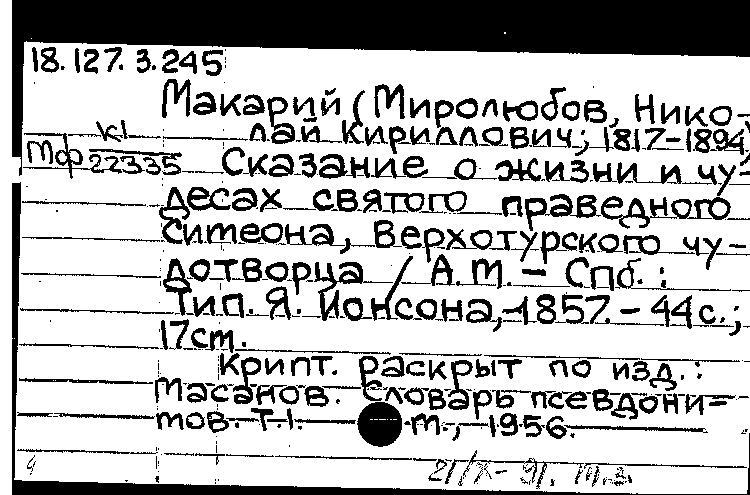 18.127.3.245
Макарий (Миролюбов, Нико-
лай Кириллович; 1817-1894)
К1
Мф 22335
Сказание о жизни и чу-
десах святого праведного
Симеона, Верхотурского чу-
дотворца / А.М. - Спб.:
Тип. Я. Ионсона, 1857. - 44 с.;
17 см.
Крипт. раскрыт по изд.:
Масанов. Словарь псевдони-
мов. Т.1. М., 1956.
4
21/X-91.